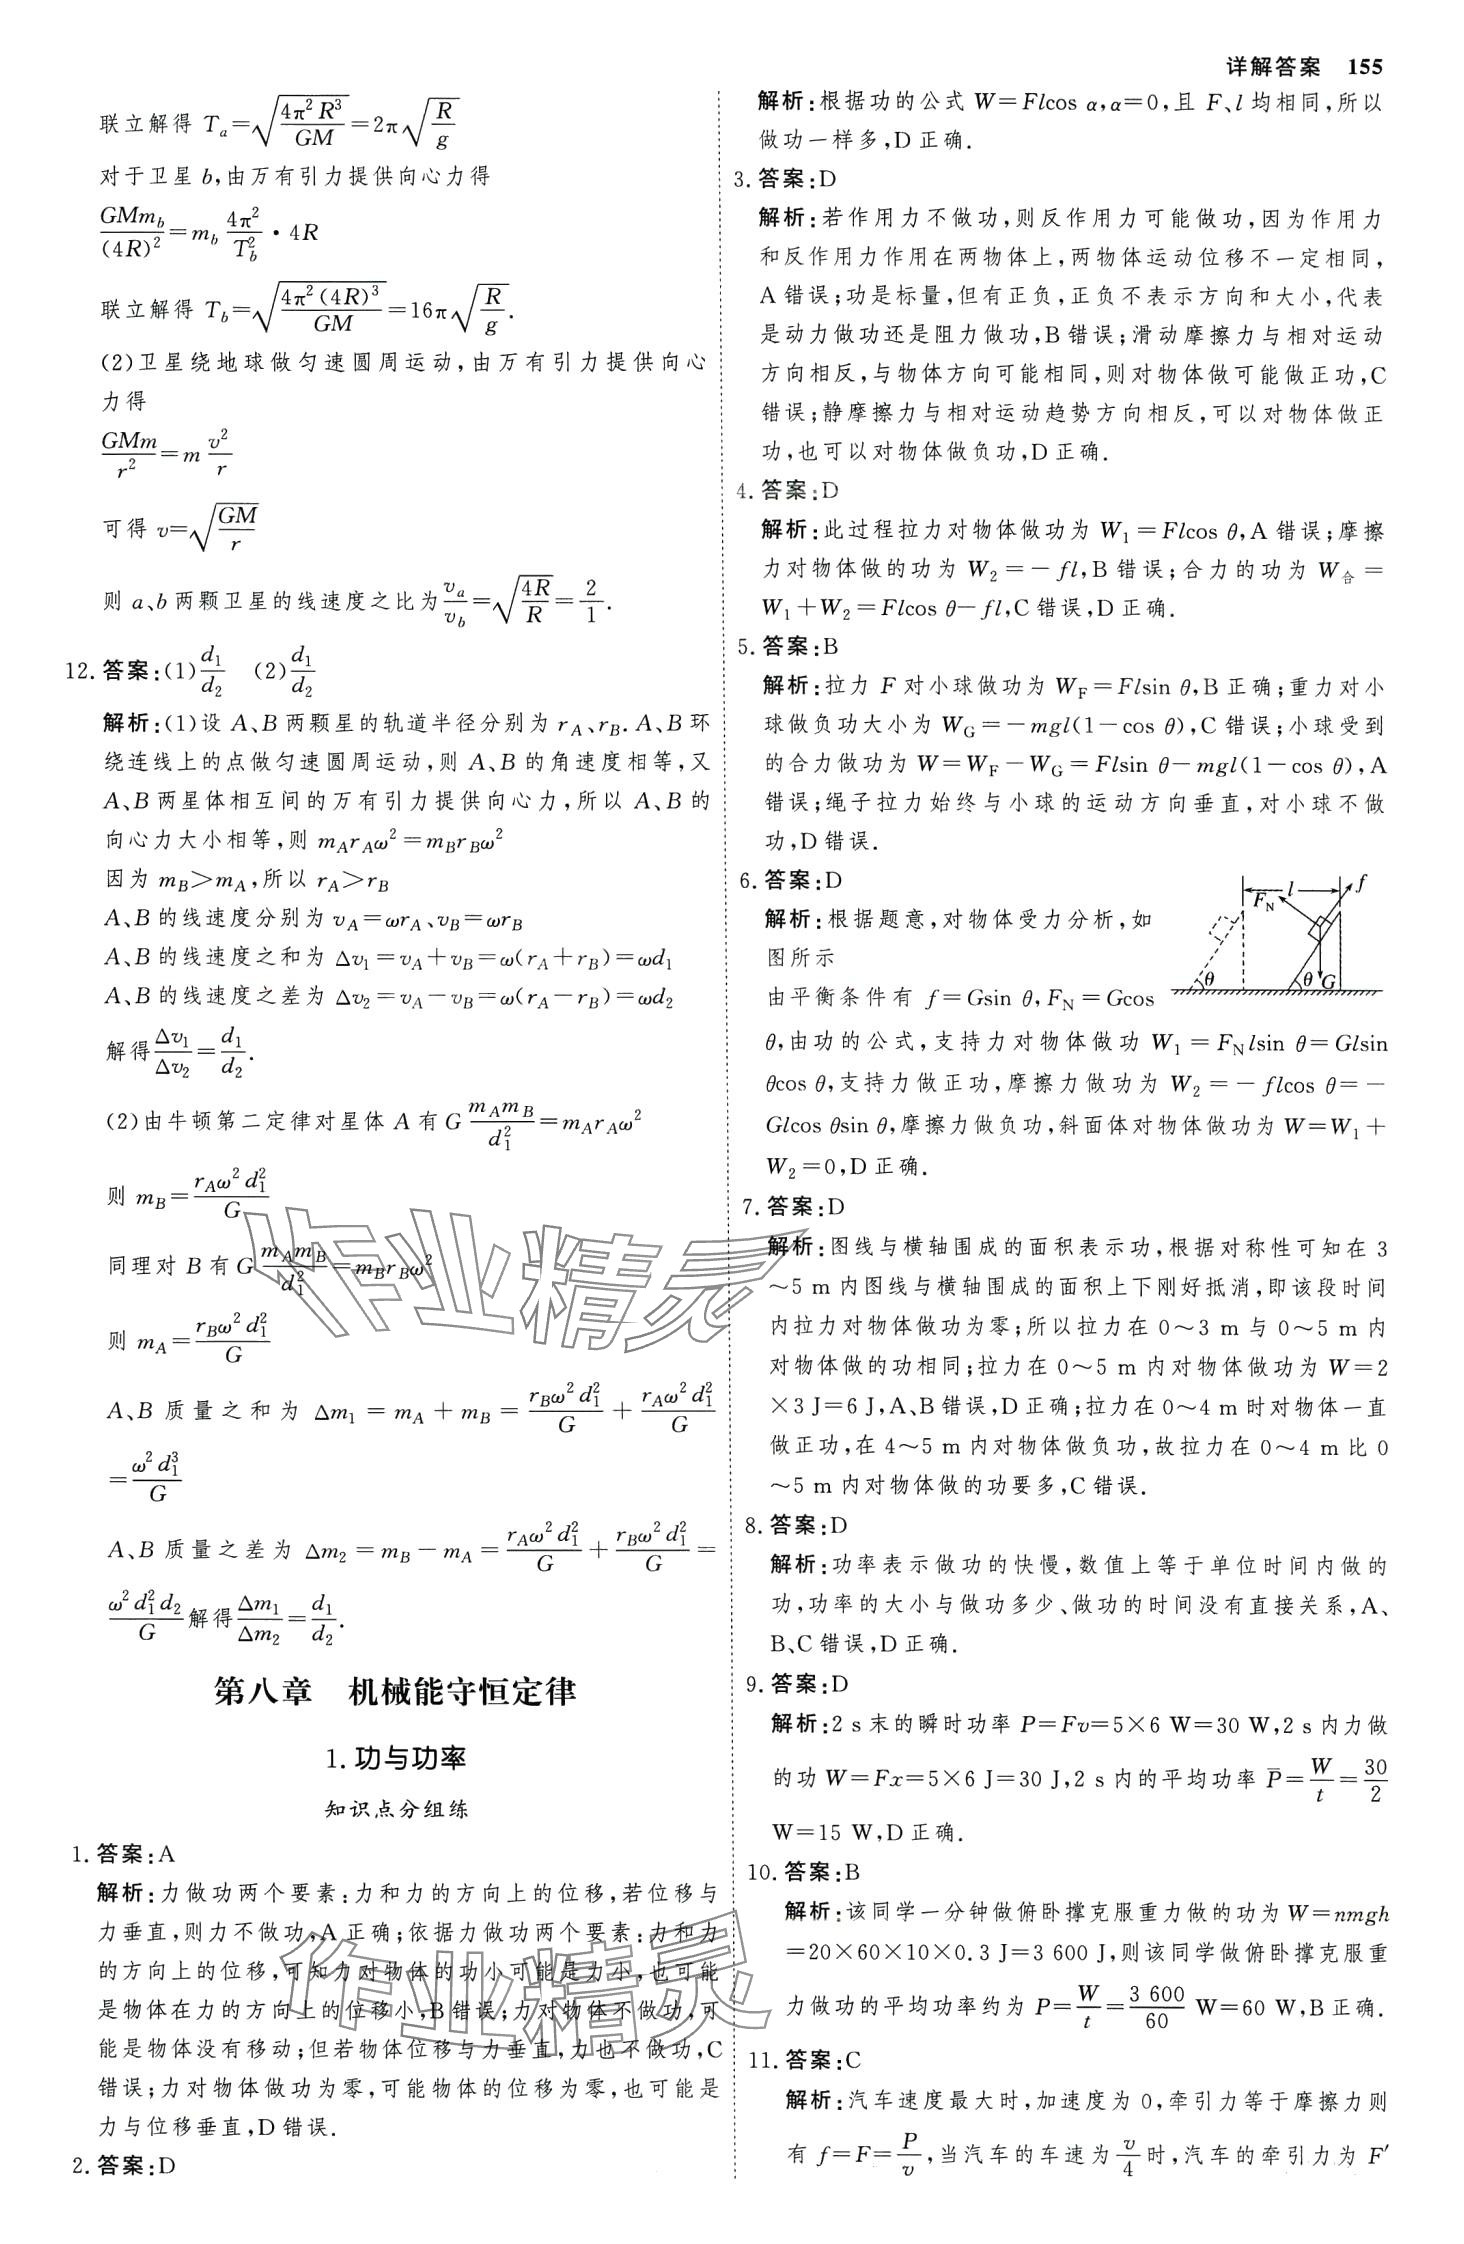 详解答案 155
联立解得 Tₐ=√(4π²R³/GM)=2π√(R/g)
对于卫星 b,由万有引力提供向心力得
GMm_b/(4R)²=m_b 4π²/T_b²·4R
联立解得 T_b=√(4π²(4R)³/GM)=16π√(R/g).
(2)卫星绕地球做匀速圆周运动,由万有引力提供向心
力得
GMm/r²=m v²/r
可得 v=√(GM/r)
则 a、b两颗卫星的线速度之比为 vₐ/v_b=√(4R/R)=2/1.
12. 答案:(1)d₁/d₂ (2)d₁/d₂
解析:(1)设 A、B 两颗星的轨道半径分别为 r_A、r_B. A、B 环
绕连线上的点做匀速圆周运动,则 A、B 的角速度相等,又
A、B 两星体相互间的万有引力提供向心力,所以 A、B 的
向心力大小相等,则 m_A r_A ω²=m_B r_B ω²
因为 m_B>m_A,所以 r_A>r_B
A、B 的线速度分别为 v_A=ωr_A、v_B=ωr_B
A、B 的线速度之和为 Δv₁=v_A+v_B=ω(r_A+r_B)=ωd₁
A、B 的线速度之差为 Δv₂=v_A-v_B=ω(r_A-r_B)=ωd₂
解得 Δv₁/Δv₂=d₁/d₂.
(2)由牛顿第二定律对星体 A 有 G m_A m_B/d₁²=m_A r_A ω²
则 m_B=r_A ω² d₁²/G
同理对 B 有 G m_A m_B/d₁²=m_B r_B ω²
则 m_A=r_B ω² d₁²/G
A、B 质量之和为 Δm₁=m_A+m_B=r_B ω² d₁²/G+r_A ω² d₁²/G
=ω² d₁³/G
A、B 质量之差为 Δm₂=m_B-m_A=r_A ω² d₁²/G+r_B ω² d₁²/G=
ω² d₁² d₂/G 解得 Δm₁/Δm₂=d₁/d₂.
第八章 机械能守恒定律
1. 功与功率
知识点分组练
1. 答案:A
解析:力做功两个要素:力和力的方向上的位移,若位移与
力垂直,则力不做功,A 正确;依据力做功两个要素:力和力
的方向上的位移,可知力对物体的功小可能是力小,也可能
是物体在力的方向上的位移小,B错误;力对物体不做功,可
能是物体没有移动;但若物体位移与力垂直,力也不做功,C
错误;力对物体做功为零,可能物体的位移为零,也可能是
力与位移垂直,D错误.
2. 答案:D
解析:根据功的公式 W=Flcos α,α=0,且 F、l 均相同,所以
做功一样多,D正确.
3. 答案:D
解析:若作用力不做功,则反作用力可能做功,因为作用力
和反作用力作用在两物体上,两物体运动位移不一定相同,
A错误;功是标量,但有正负,正负不表示方向和大小,代表
是动力做功还是阻力做功,B错误;滑动摩擦力与相对运动
方向相反,与物体方向可能相同,则对物体做可能做正功,C
错误;静摩擦力与相对运动趋势方向相反,可以对物体做正
功,也可以对物体做负功,D正确.
4. 答案:D
解析:此过程拉力对物体做功为 W₁=Flcos θ,A 错误;摩擦
力对物体做的功为 W₂=-fl,B 错误;合力的功为 W合=
W₁+W₂=Flcos θ-fl,C错误,D正确.
5. 答案:B
解析:拉力 F 对小球做功为 W_F=Flsin θ,B 正确;重力对小
球做负功大小为 W_G=-mgl(1-cos θ),C 错误;小球受到
的合力做功为 W=W_F-W_G=Flsin θ-mgl(1-cos θ),A
错误;绳子拉力始终与小球的运动方向垂直,对小球不做
功,D错误.
6. 答案:D
解析:根据题意,对物体受力分析,如
图所示
l f F_N θ θ G
由平衡条件有 f=Gsin θ,F_N=Gcos
θ,由功的公式,支持力对物体做功 W₁=F_N lsin θ=Glsin
θcos θ,支持力做正功,摩擦力做功为 W₂=-flcos θ=-
Glcos θsin θ,摩擦力做负功,斜面体对物体做功为 W=W₁+
W₂=0,D正确.
7. 答案:D
解析:图线与横轴围成的面积表示功,根据对称性可知在 3
~5 m 内图线与横轴围成的面积上下刚好抵消,即该段时间
内拉力对物体做功为零;所以拉力在 0~3 m 与 0~5 m 内
对物体做的功相同;拉力在 0~5 m 内对物体做功为 W=2
×3 J=6 J,A、B错误,D正确;拉力在 0~4 m 时对物体一直
做正功,在 4~5 m 内对物体做负功,故拉力在 0~4 m 比 0
~5 m 内对物体做的功要多,C错误.
8. 答案:D
解析:功率表示做功的快慢,数值上等于单位时间内做的
功,功率的大小与做功多少、做功的时间没有直接关系,A、
B、C错误,D正确.
9. 答案:D
解析:2 s末的瞬时功率 P=Fv=5×6 W=30 W,2 s内力做
的功 W=Fx=5×6 J=30 J,2 s内的平均功率 P̄=W/t=30/2
W=15 W,D正确.
10. 答案:B
解析:该同学一分钟做俯卧撑克服重力做的功为 W=nmgh
=20×60×10×0.3 J=3 600 J,则该同学做俯卧撑克服重
力做功的平均功率约为 P=W/t=3 600/60 W=60 W,B正确.
11. 答案:C
解析:汽车速度最大时,加速度为 0,牵引力等于摩擦力则
有 f=F=P/v,当汽车的车速为 v/4 时,汽车的牵引力为 F′
作业精灵
作业精灵